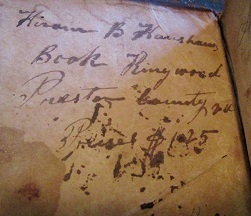 Hiram B Hanshaw
Book Ringwood
Preston County va
Price $1.45